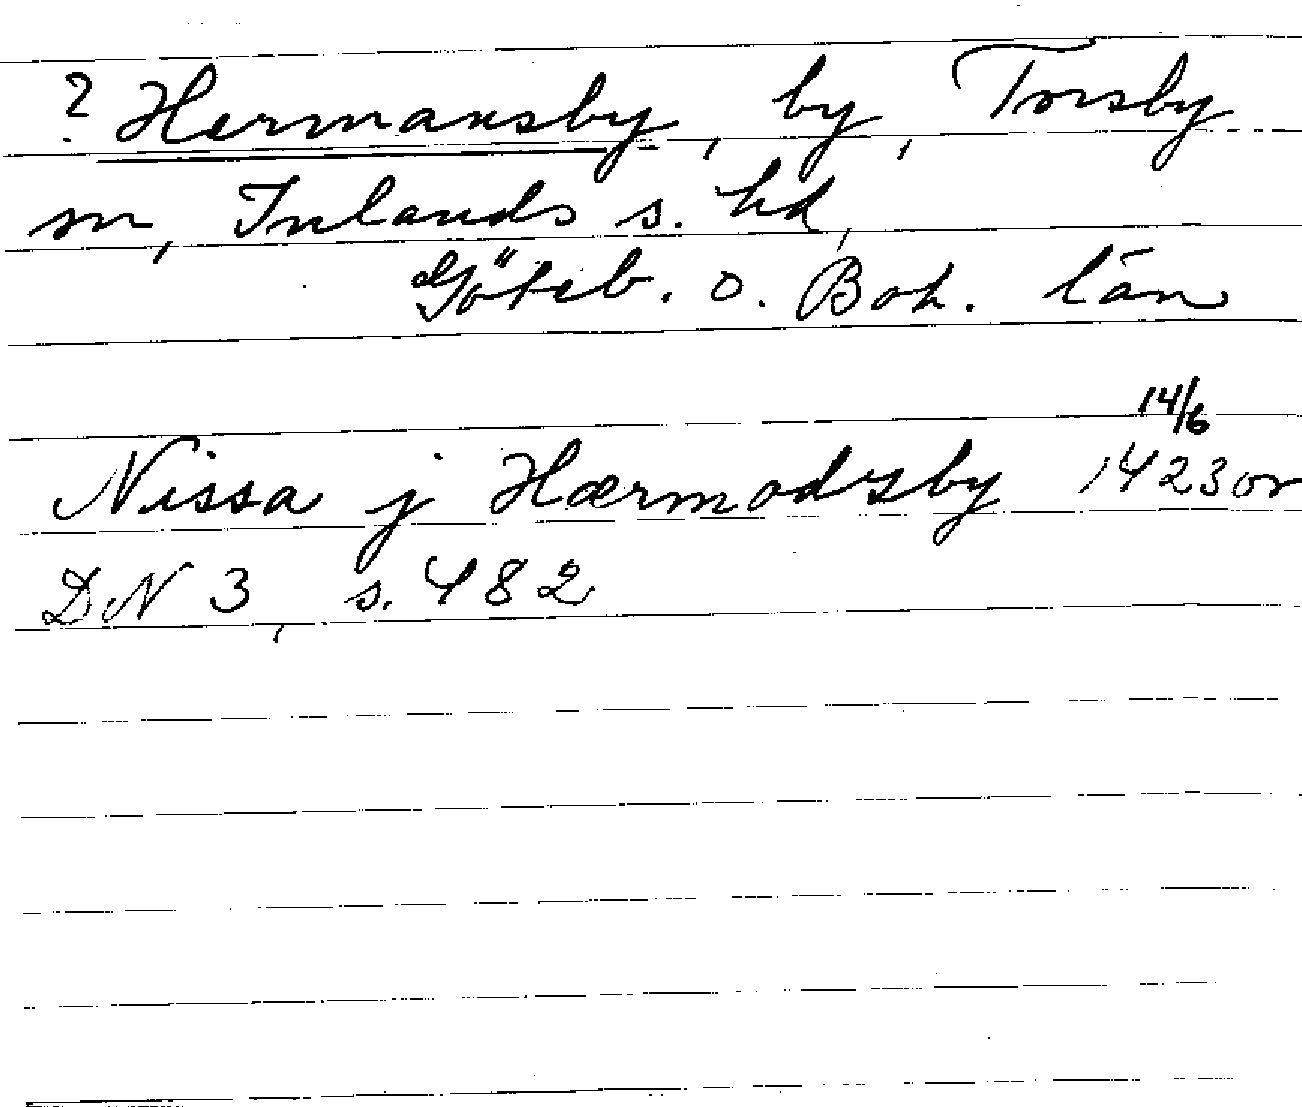 ? Hermansby, by, Torsby
sn, Inlands s. hd,
Göteb. o. Boh. län
14/6
Nissa j Hærmodzsby 1423 or
DN 3, s. 482